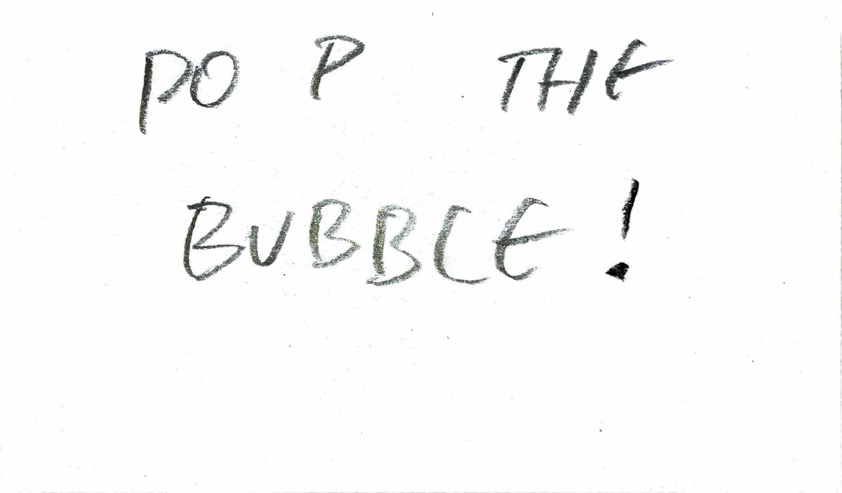 POP THE
BUBBLE!